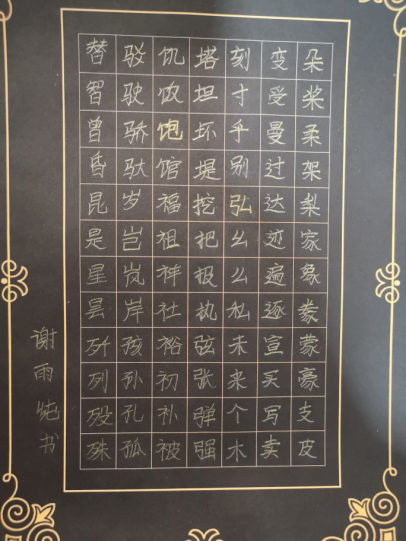 替驳饥塔刻变朵
智驶饭坦寸受桨
曾骄饱坏乎曼柔
昏驮馆堤别过架
昆岁福挖弘达梨
是岂祖把幺迹家
星岚祥报么遍象
昙岸社执私逐豢
歼孩裕弦未宣蒙
列孙初张来买豪
殁孔补弹个写支
殊孤被强木卖皮
谢雨纯书